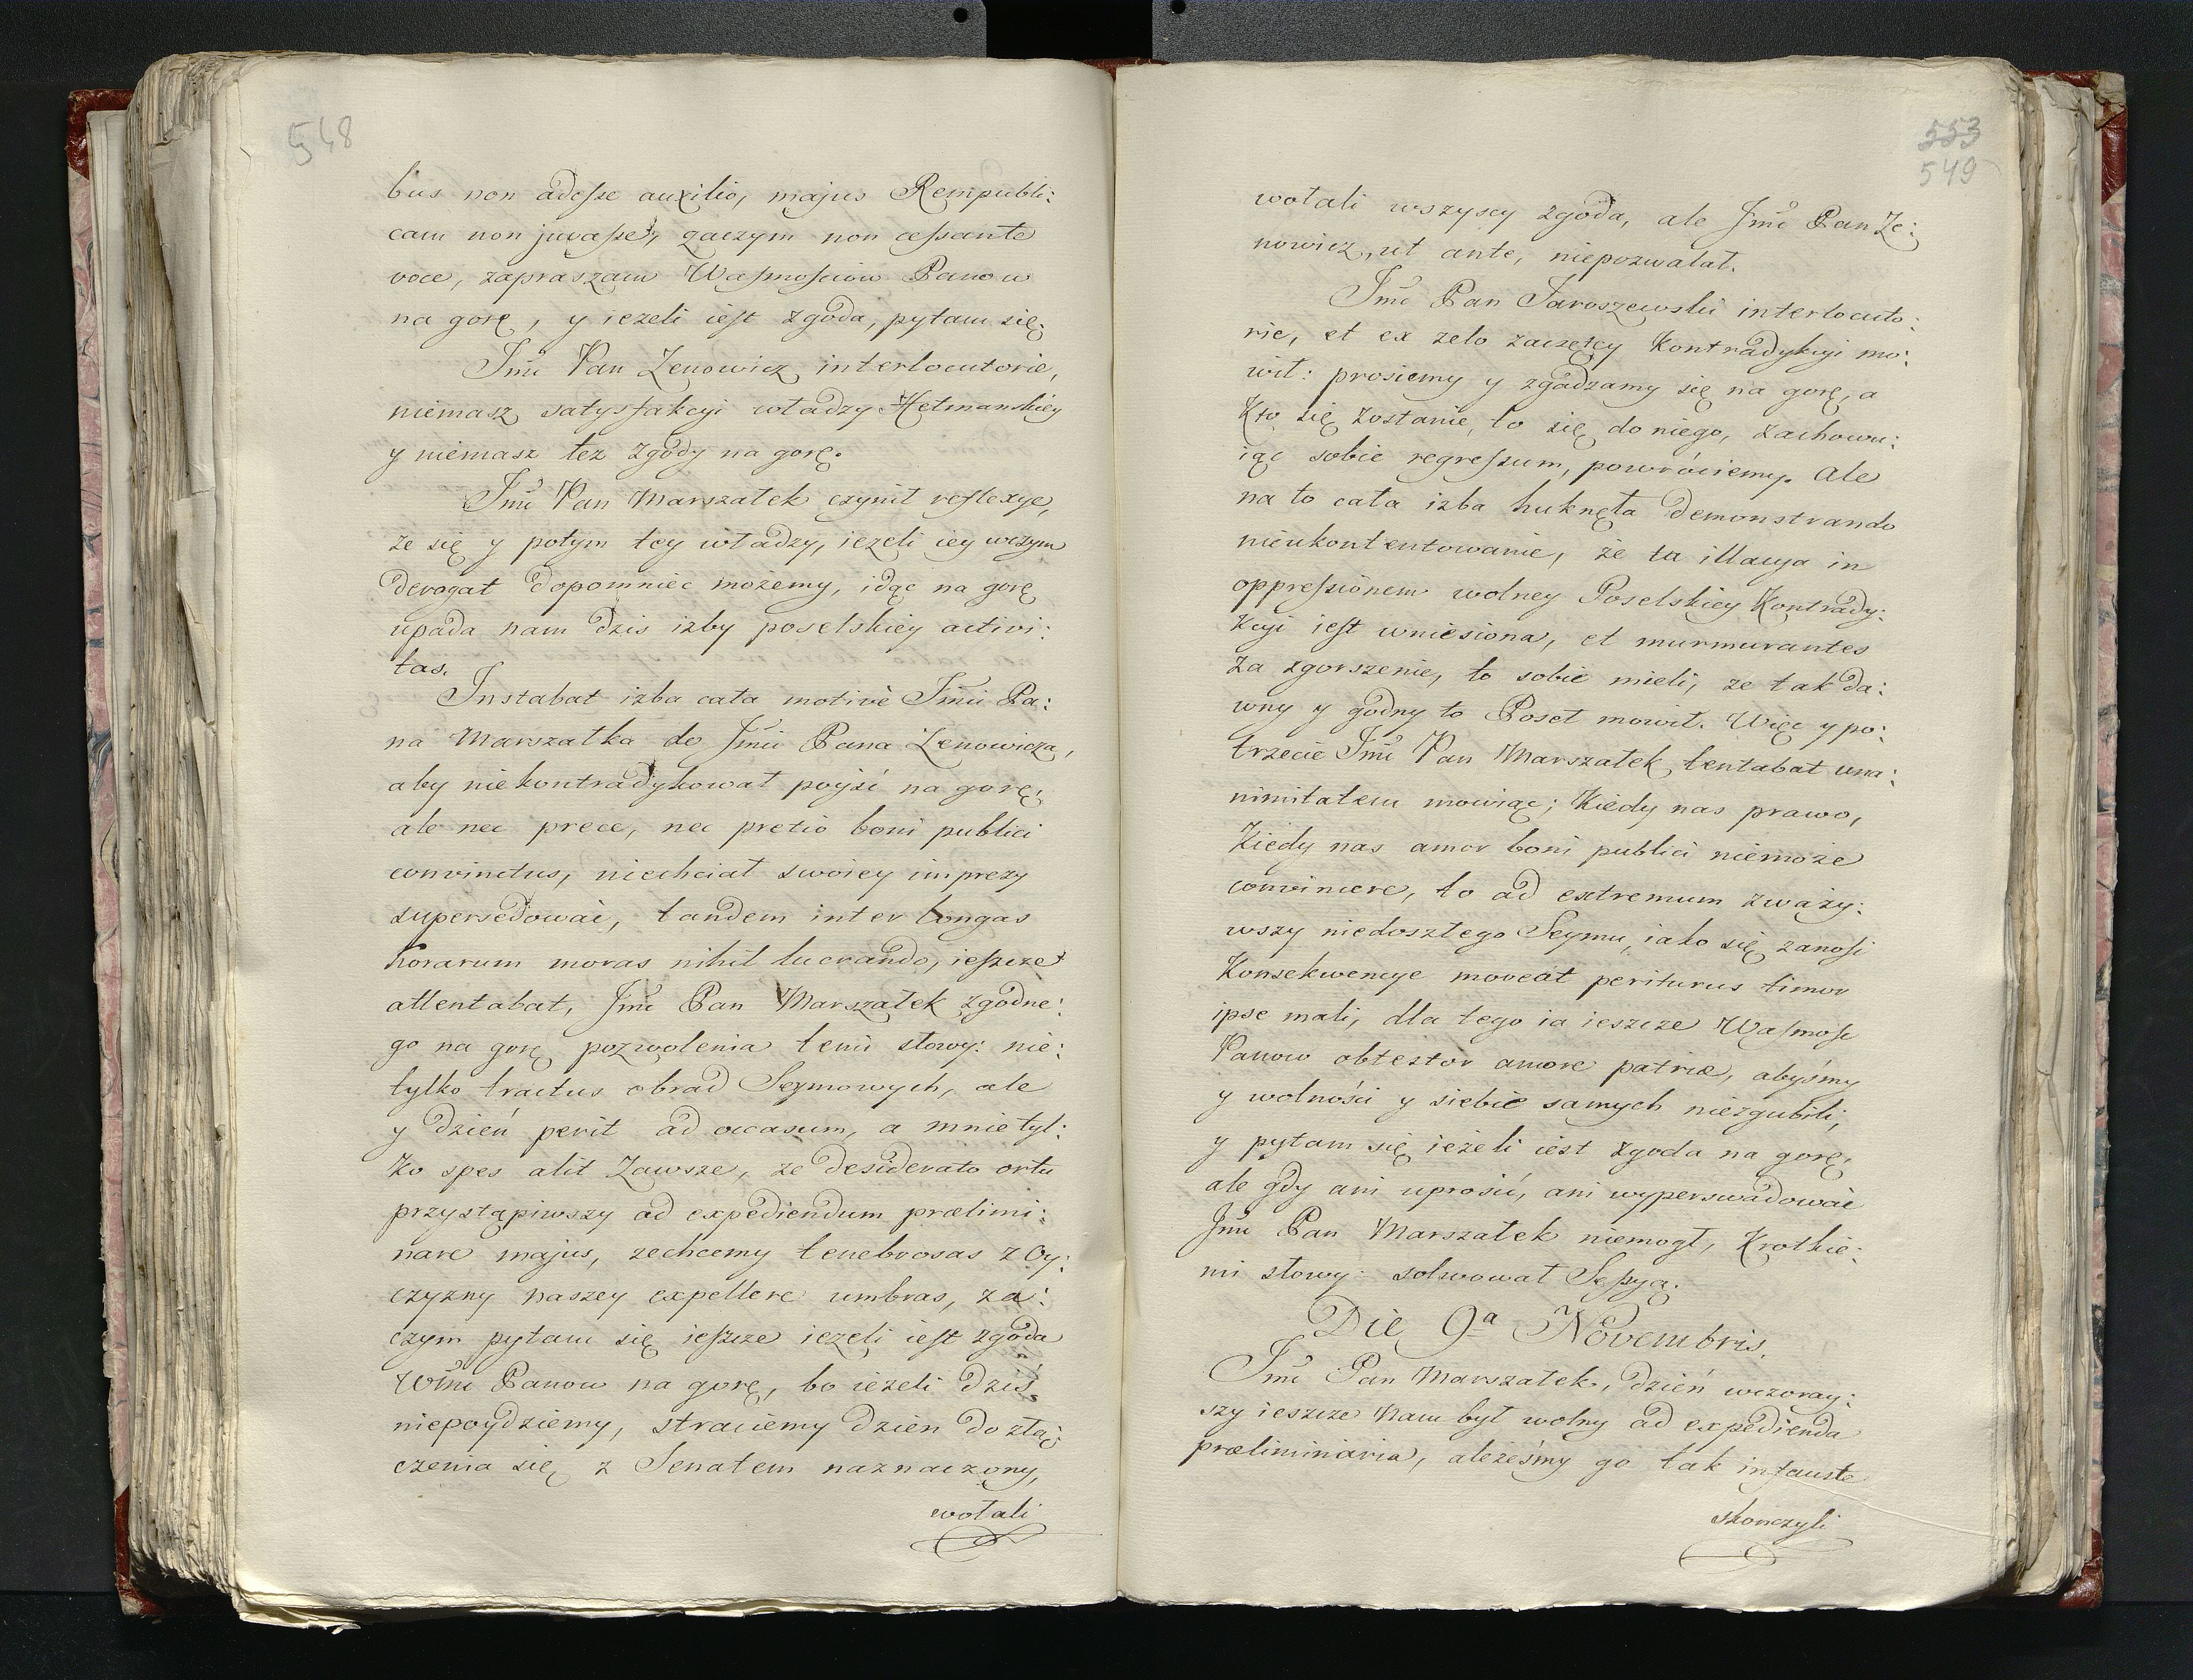 548
bus non adesse auxilio, majus Rempubli:
cam non juvasse, zaczym non cessante
voce, zapraszam Wasmosciow Panow
na gorę, y iezeli iest zgoda, pytam się.
Jmć Pan Zenowicz interlocutorie,
niemasz satysfakcyi władzy Hetmanskiey
y niemasz tez zgody na gorę.
Jmć Pan Marszałek czynił reflexye,
ze się y potym tey władzy, iezeli iey wczym
derogat dopomniec możemy, idąc na gorę
upada nam dzis izby poselskiey activi:
tas.
Instabat izba cała motivè Jmći Pa:
na Marszałka do Jmći Pana Zenowicza,
aby niekontradykował poyść na gorę,
ale nec prece, nec pretio boni publici
convinctus, niechciał swoiey imprezy
supersedować, tandem inter longas
horarum moras nihil lucrando, ieszcze
attentabat, Jmć Pan Marszałek zgodne:
go na gorę pozwolenia temi słowy: nie:
tylko tractus obrad Seymowych, ale
y dzień perit ad occasum, a mnie tyl:
ko spes alit zawsze, ze desiderato ortu
przystąpiwszy ad expediendum prælimi:
nare majus, zechcemy tenebrosas z Oy:
czyzny naszey expellere umbras, za:
czym pytam się ieszcze iezeli iest zgoda
Wmć Panow na gorę, bo ieżeli dziś
niepoydziemy, straciemy dzien do złą:
czenia się z Senatem naznaczony,
wołali
553
549
wołali wszyscy zgoda, ale Jmć Pan Ze:
nowicz, ut ante, niepozwalał.
Jmć Pan Jaroszewski interlocuto:
rie, et ex zelo zaczętey kontradykcyi mo:
wił: prosiemy y zgadzamy się na gorę, a
Kto się zostanie, to się do niego, zachowu:
iąc sobie regressum, powróciemy. Ale
na to cała izba huknęła demonstrando
nieukontentowanie, że ta illacya in
oppressionem wolney Poselskiey Kontrady:
kcyi iest wniesiona, et murmurantes
za zgorszenie, to sobie mieli, ze tak da:
wny y godny to Poseł mowił. Więc y po:
trzecie Jmć Pan Marszałek tentabat una:
nimitatem mowiąc; Kiedy nas prawo,
Kiedy nas amor boni publici niemoże
convincere, to ad extremum zważy:
wszy niedoszłego Seymu, iako się zanosi
Konsekwencye moveat periturus timor
ipse mali, dla tego ia ieszcze Wasmość
Panow obtestor amore patriæ, abyśmy
y wolności y siebie samych niezgubili,
y pytam się ieżeli iest zgoda na gorę,
ale gdy ani uprosić, ani wyperswadować
Jmć Pan Marszałek niemogł, Krotkie:
mi słowy solwował Sessyą.
Die 9a Novembris.
Jmć Pan Marszałek, dzień wczoray:
szy ieszcze nam był wolny ad expedienda
præliminaria, aleześmy go tak infauste
skończyli